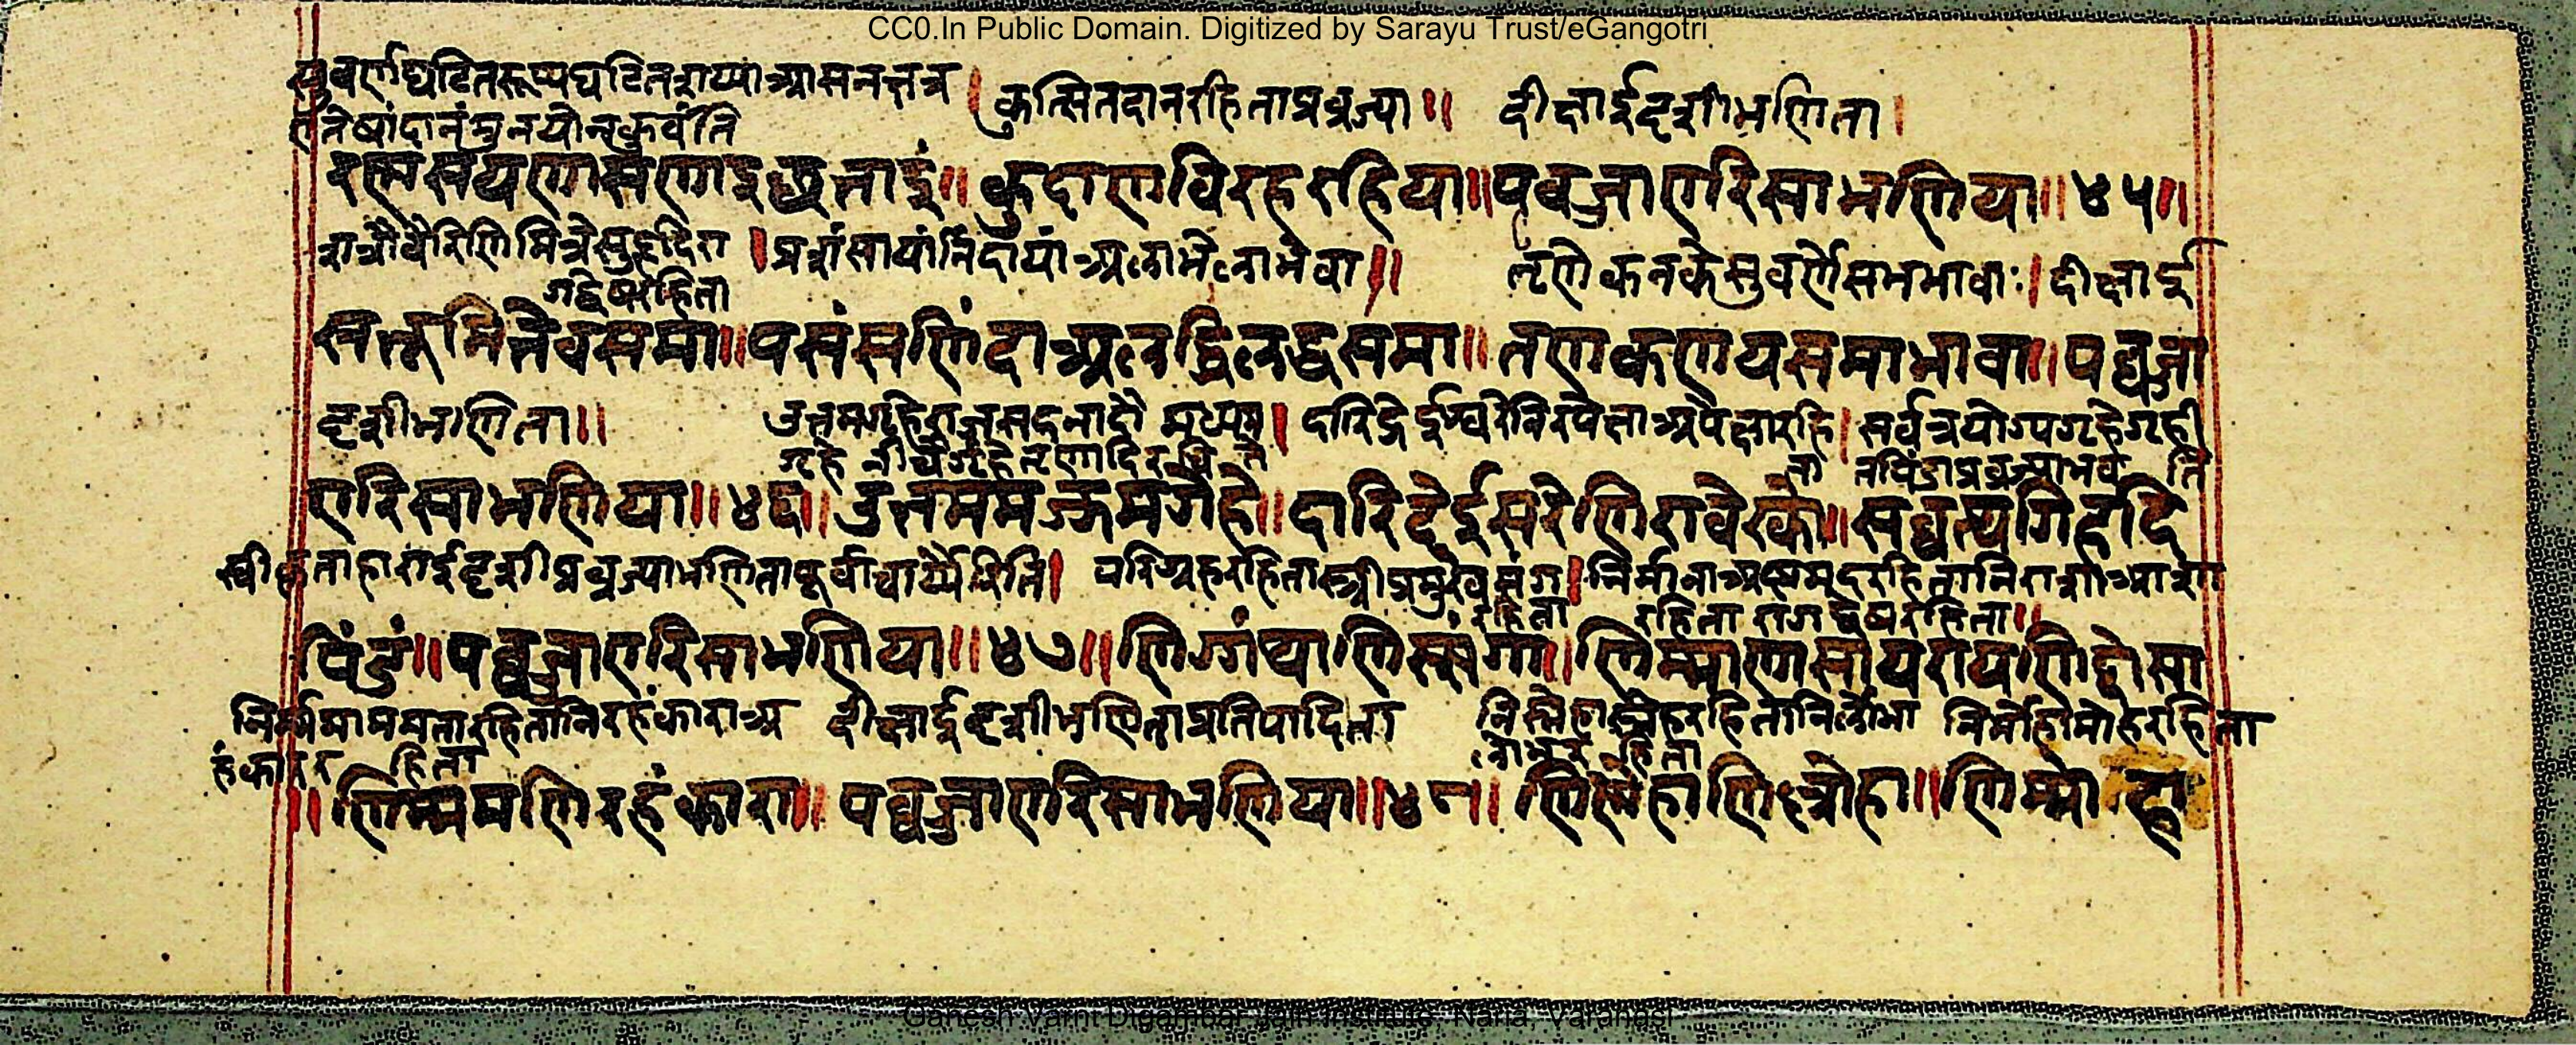 CC0.In Public Domain. Digitized by Sarayu Trust/eGangotri
सुवर्णघटितरूप्यघटितशय्याआसनछत्र । कुत्सितदानरहिताप्रव्रज्या ॥ दीक्षाईदृशीभणिता ।
तेषांदानंमुनयोनकुर्वंति
सयणासणाइछत्ताइं ॥ कुदाणविरहरहिया ॥ पव्वज्जाएरिसाभणिया ॥ ४५ ॥
शत्रौवैरिणिमित्रेसुहृदि । प्रशंसायांनिंदायांअलाभेलाभेवा ॥ तृणेकनकेसुवर्णेसमभावाः । दीक्षाई
द्वेषरहिता
सत्तूमित्तेवसमा ॥ पसंसणिंदाअलद्धिलद्धसमा ॥ तणकणयसमाभावा ॥ पव्वज्जा
दृशीभणिता ॥ दरिद्रेईश्वरेनिरपेक्षाअपेक्षारहि । सर्वत्रयोग्यगृहेगृही
गृहे नीचैगृहेतृणादि ता तपिंडाप्रव्रज्याभव ति
एरिसाभणिया ॥ ४६ ॥ उत्तममज्झमगेहे ॥ दारिद्देईसरेणिरावेक्खा ॥ सव्वत्थगिहिदि
स्वीकृताहाराईदृशीप्रव्रज्याभणितापूर्वाचार्यैरिति । परिग्रहरहितास्त्रीप्रमुखसंग । निर्मानाअष्टमदरहितानिराशाआशा
रहिता रहिता रागद्वेषरहिता ॥
पिंडं ॥ पव्वज्जाएरिसाभणिया ॥ ४७ ॥ णिग्गंथाणिस्संगा ॥ णिम्माणासायरायणिद्दोसा
निर्ममाममतारहितानिरहंकाराअ दीक्षाईदृशीभणिताप्रतिपादिता निस्नेहास्नेहरहितानिर्लोभा निर्मोहामोहरहिता
हंकारर हिता लोभर हिता
॥ णिम्ममणिरहंकारा ॥ पव्वज्जाएरिसाभणिया ॥ ४८ ॥ णिण्णेहाणिल्लोहा ॥ णिम्मोहा
Ganesh Varni Digambar Jain Institute, Naria, Varanasi